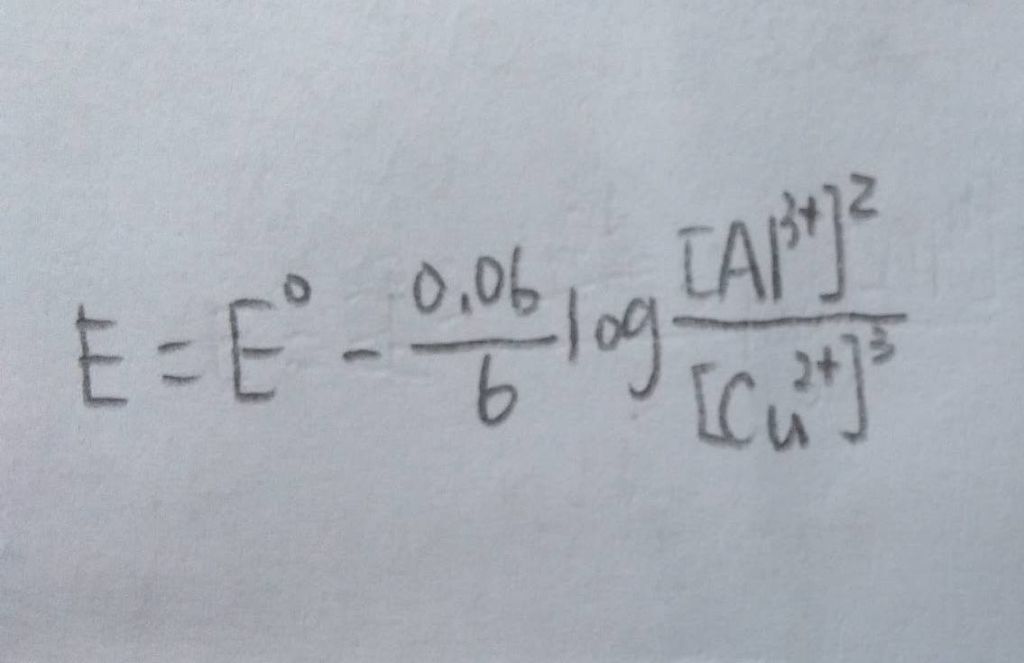 E = E⁰ - 0.06/6 log [Al³⁺]²/[Cu²⁺]³